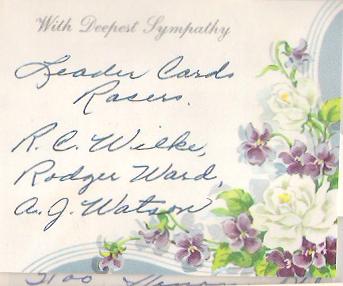 With Deepest Sympathy
Leader Cards
Racers.
R. C. Wilke,
Rodger Ward,
A. J. Watson